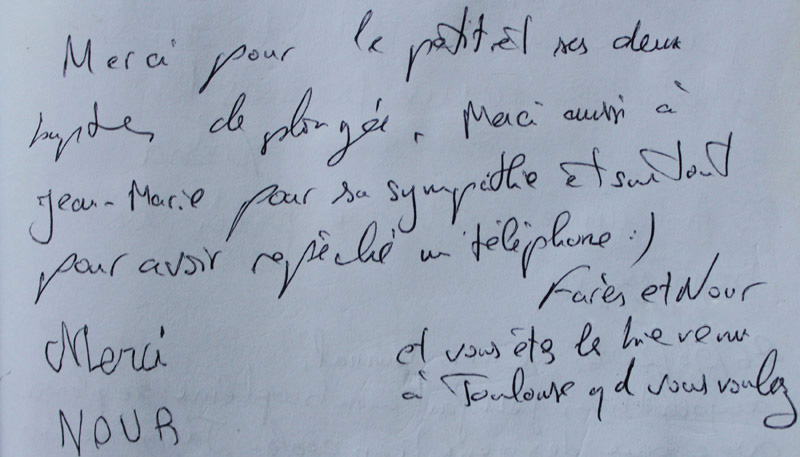 Merci pour le ses deux
de plongée. Merci aussi à
Jean-Marie pour sa sympathie et surtout
pour avoir repêché un téléphone :)
Farès et Nour
Merci
NOUR
et vous êtes le bienvenu
à Toulouse qd vous voulez